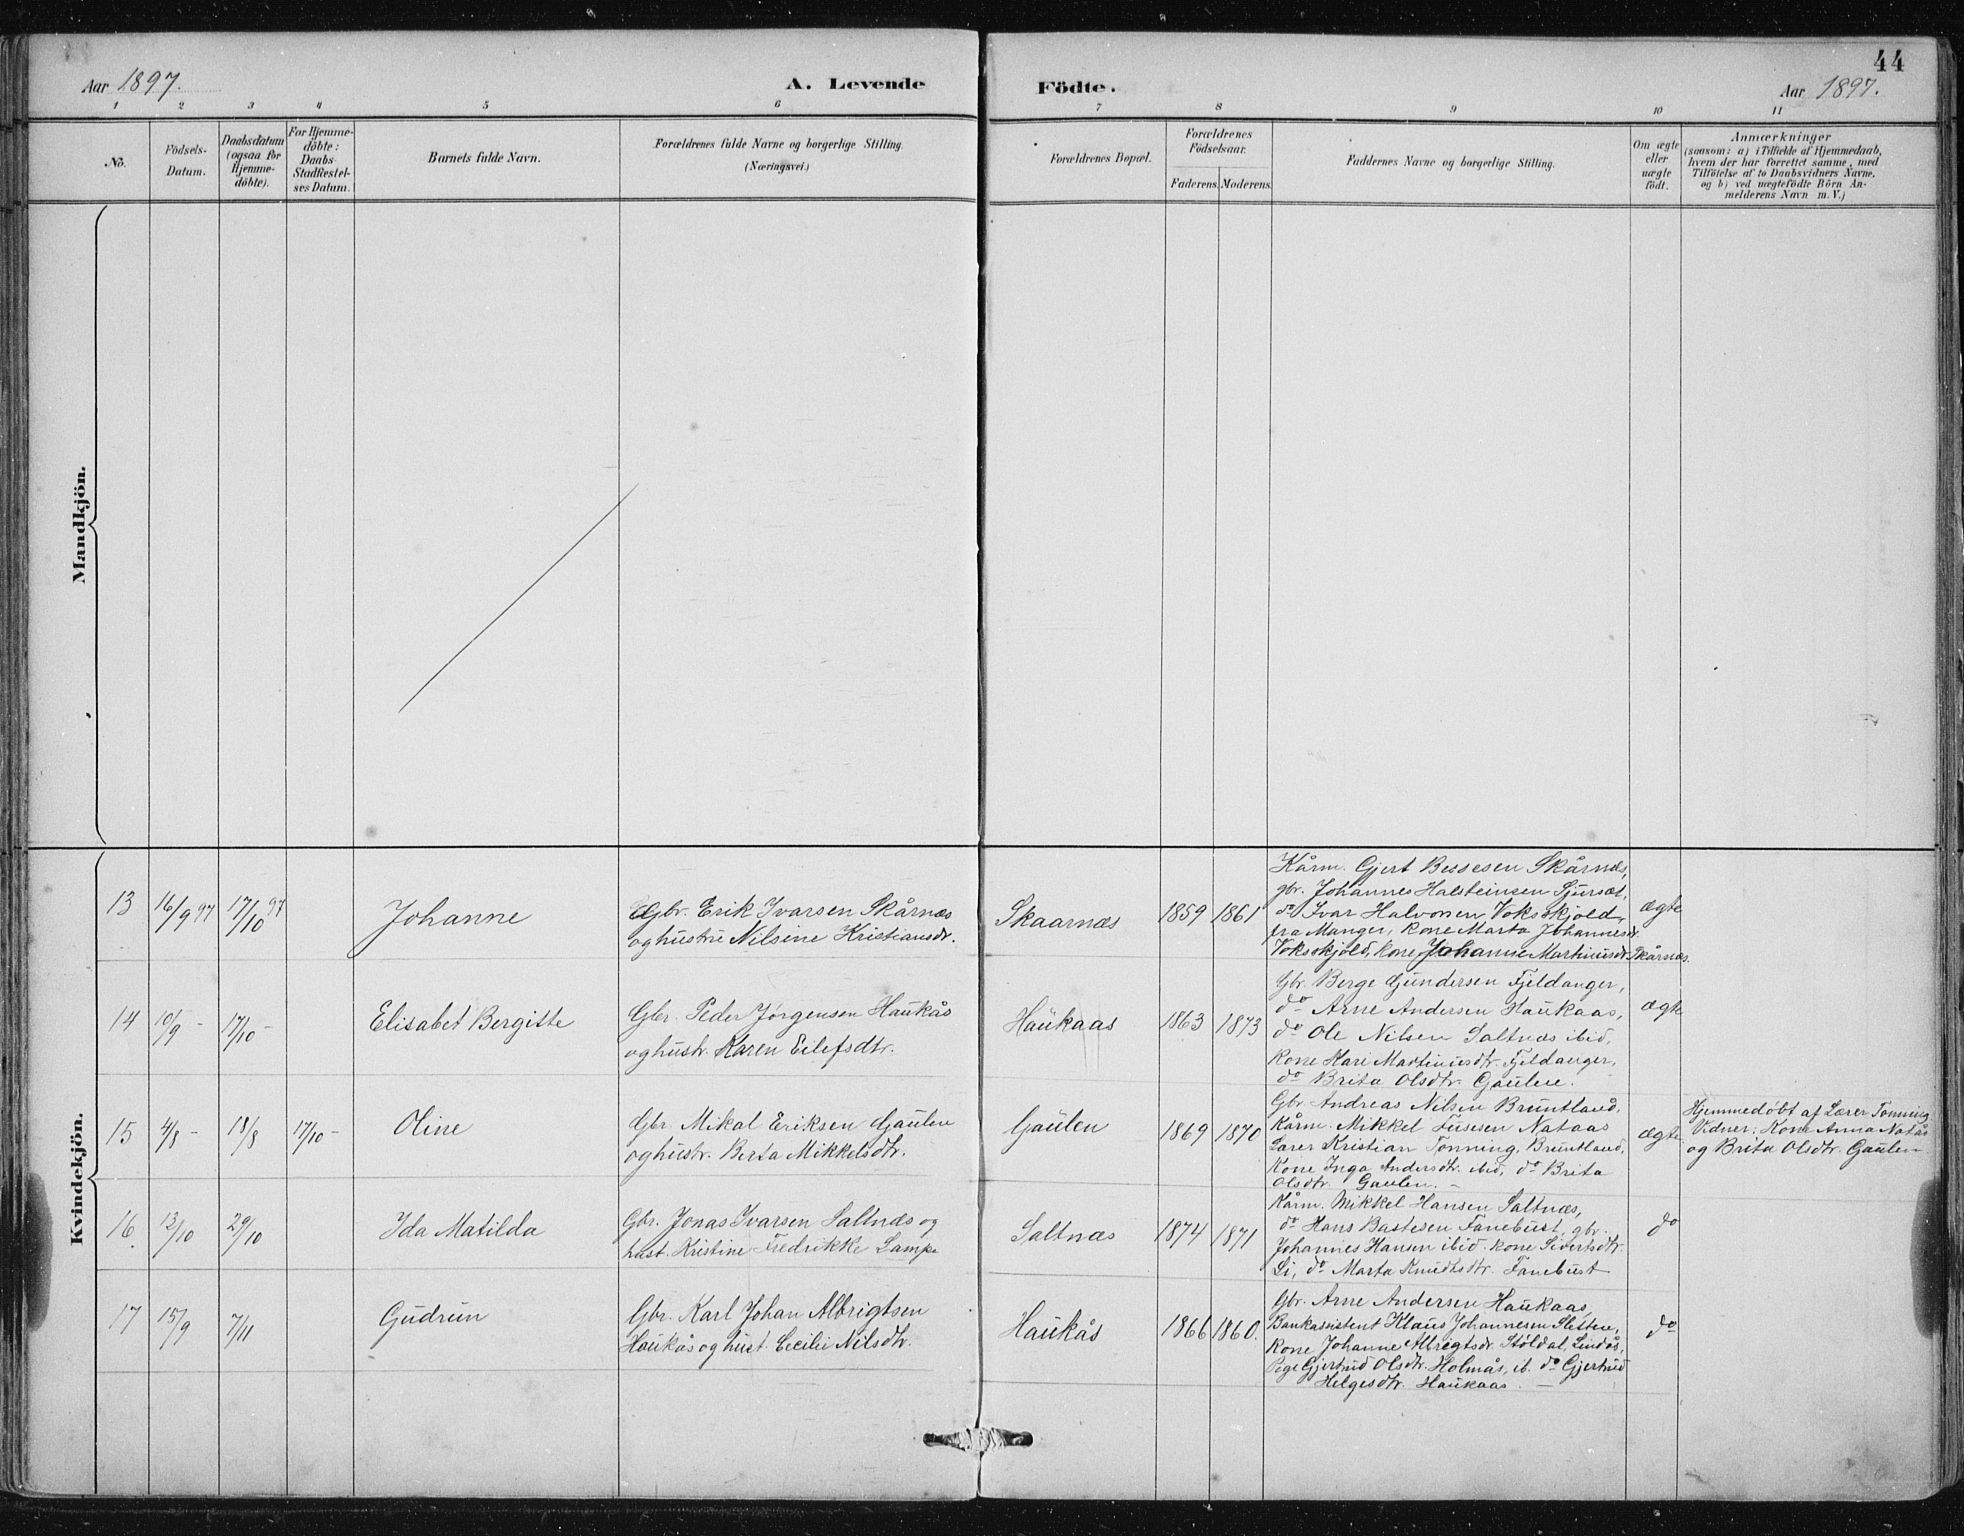 44
Aar 1897.
A. Levende Födte.
Aar 1897.
1 2 3 4 5 6 7 8 9 10 11
No.
Födsels-
Datum.
Daabsdatum
(ogsaa for
Hjemme-
döbte).
For Hjemme-
döbte:
Daabs
Stadfæstel-
ses Datum.
Barnets fulde Navn.
Forældrenes fulde Navne og borgerlige Stilling.
(Næringsvei.)
Forældrenes Bopæl.
Forældrenes
Födselsaar.
Faderens. Moderens.
Faddernes Navne og borgerlige Stilling.
Om ægte
eller
uægte
födt.
Anmærkninger
(saasom: a) i Tilfælde af Hjemmedaab,
hvem der har forrettet samme, med
Tilföielse af to Daabsvidners Navne,
og b) ved uægtefödte Börn An-
melderens Navn m. V.)
Mandkjön.
Kvindekjön.
13 16/9 97 17/10 97
Johanne
Gbr. Erik Ivarsen Skårnæs
og hustru Nilsine Kristiansdr.
Skaarnæs
1859 1861
Kårm. Gjert Bessesen Skårnæs,
gbr. Johannes Halsteinsen Sjursæt,
do Ivar Halvorsen Voksskjold,
fra Manger, kone Marta Johannesdr.
Voksskjold, kone Johanne Martinusdr. Skårnæs.
ægte
14 10/9 - 17/10 -
Elisabet Bergitte
Gbr. Peder Jørgensen Haukås
og hustr. Karen Eilefsdtr.
Haukaas
1863 1873
Gbr. Berge Gundersen Fjeldanger,
do Arne Andersen Haukaas,
do Ole Nilsen Saltnæs ibid,
Kone Kari Martinusdtr. Fjeldanger,
do Brita Olsdtr. Gaulen.
ægte
15 4/8 - 18/8 17/10 -
Oline
Gbr. Mikal Eriksen Gaulen
og hustr. Berta Mikkelsdtr.
Gaulen
1869 1870
Gbr. Andreas Nilsen Bruntland,
Kårm. Mikkel Fusesen Nataas
Lærer Kristian Tonning, Bruntland,
Kone Inga Andersdtr. ibid, do Brita
Olsdtr. Gaulen. -
ægte
Hjemmedøbt af Lærer Tonning
Vidner: Kone Anna Natås
og Brita Olsdtr. Gaulen
16. 12/10 29/10
Ida Matilda
Gbr. Jonas Ivarsen Saltnæs og
hust. Kristine Fredrikke Lampe
Saltnæs
1874 1871
Kårm. Mikkel Hansen Saltnæs,
do Hans Bastesen Fanebust, gbr.
Johannes Hansen ibid. kone Sivertsdtr.
Li, do Marta Knudtsdtr. Fanebust
do
17 15/9 7/11
Gudrun
Gbr. Karl Johan Albrigtsen
Haukås og hust. Cecilie Nilsdtr.
Haukås
1866 1860.
Gbr. Arne Andersen Haukaas,
Bankassistent Klaus Johannesen Sletten,
Kone Johanne Albregtsdr. Stöldal, Lindås,
Pige Gjertrud Olsdtr. Holmås, ib. do Gjertrud
Helgesdtr. Haukaas. -
do